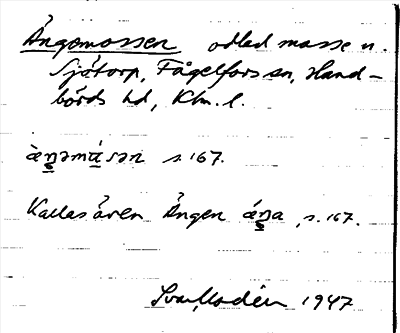 Ängomossen odlad mosse n.
Sjötorp, Fågelfors sn, Hand-
börds hd, Klm. l.
æ̀ŋəmɷ́sən s. 167.
Kallas även Ängen ǽŋa, s. 167.
Ivar Modéer 1947